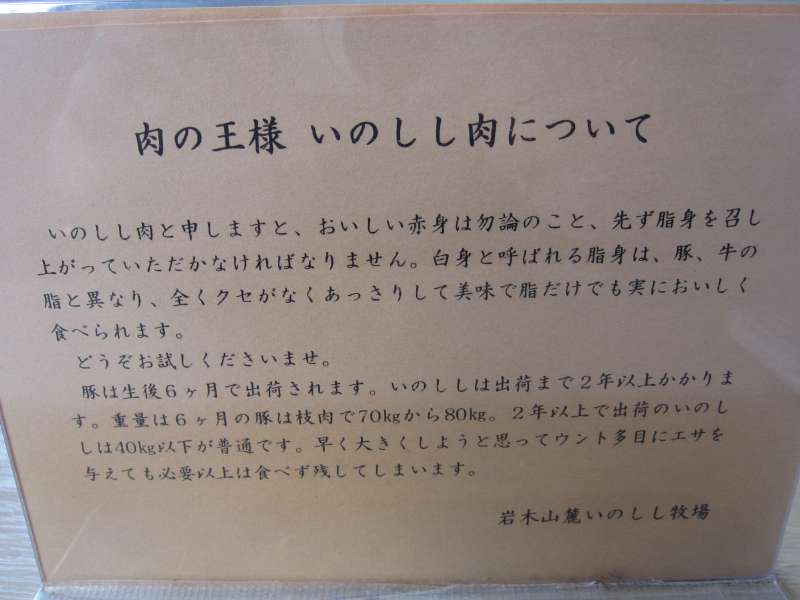 肉の王様 いのしし肉について
いのしし肉と申しますと、おいしい赤身は勿論のこと、先ず脂身を召し
上がっていただかなければなりません。白身と呼ばれる脂身は、豚、牛の
脂と異なり、全くクセがなくあっさりして美味で脂だけでも実においしく
食べられます。
どうぞお試しくださいませ。
豚は生後６ヶ月で出荷されます。いのししは出荷まで２年以上かかりま
す。重量は６ヶ月の豚は枝肉で70kgから80kg。２年以上で出荷のいのし
しは40kg以下が普通です。早く大きくしようと思ってウント多目にエサを
与えても必要以上は食べず残してしまいます。
岩木山麓いのしし牧場